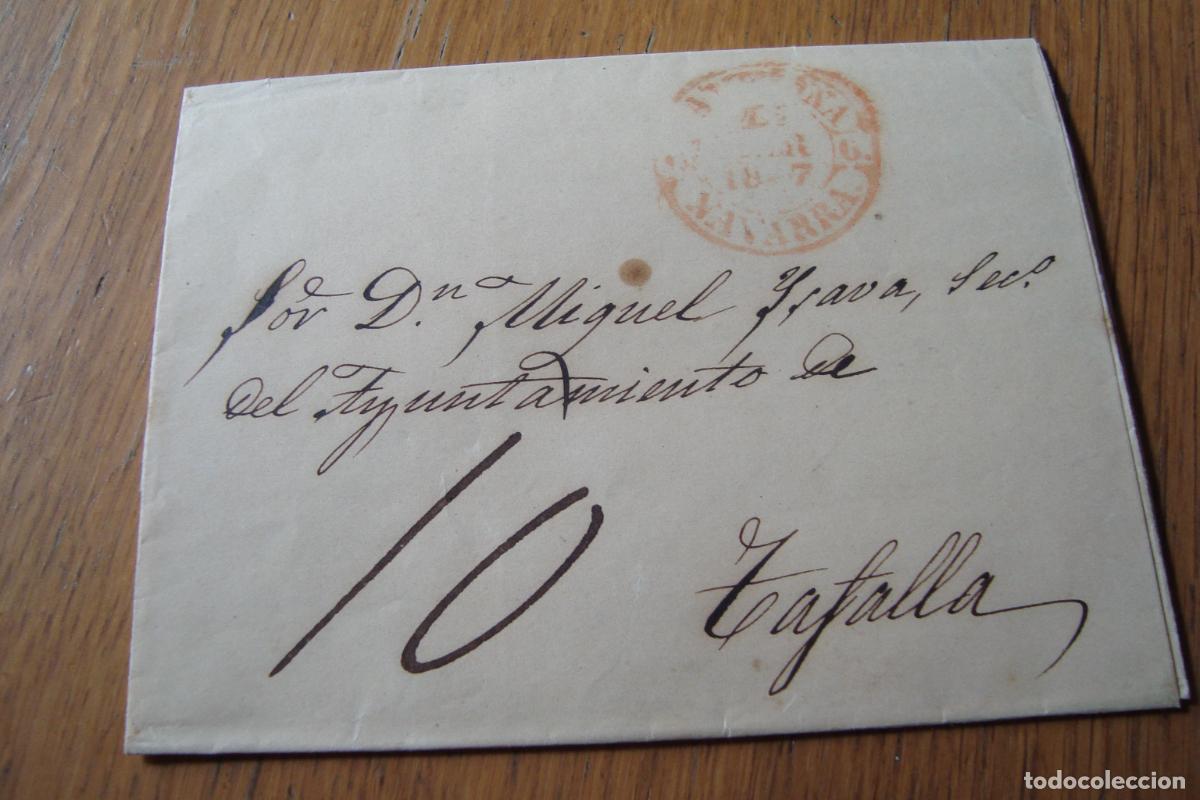 NAVARRA
Sor. Dn. Miguel Ysava, Seco.
del Ayuntamiento de
10
Tafalla
todocoleccion